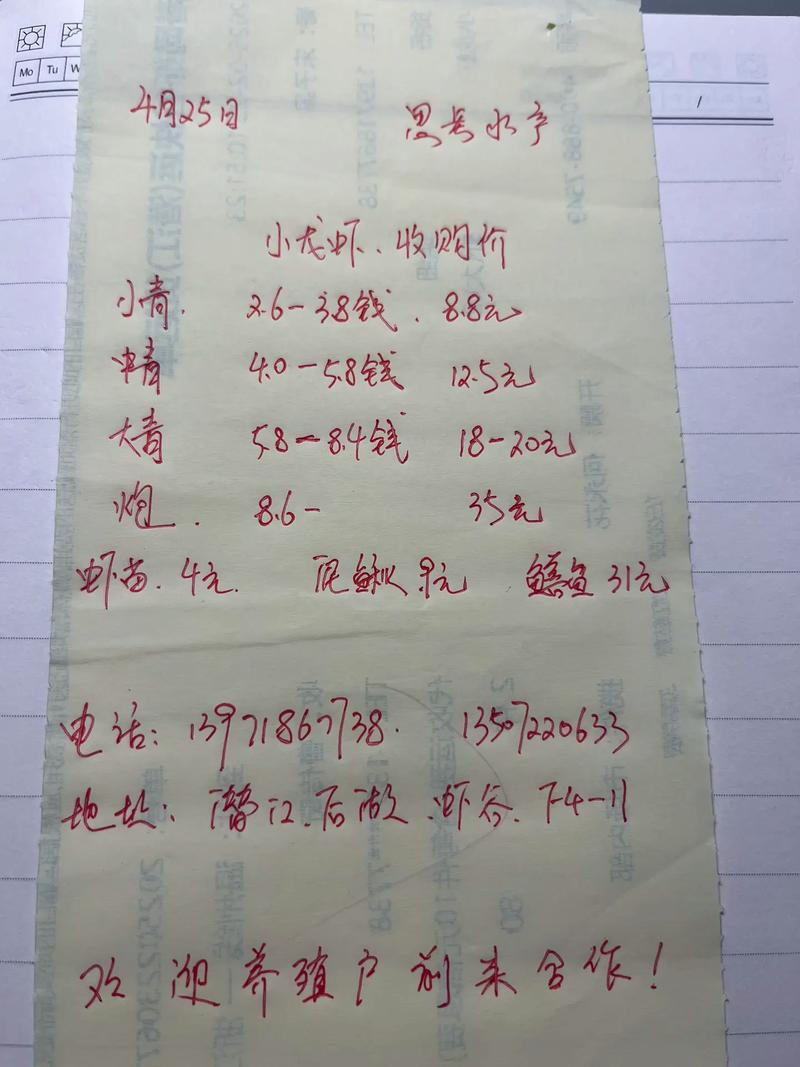 Mo Tu W
4月25日 思长水产
小龙虾、收购价
小青. 2.6-3.8钱. 8.8元
中青 4.0-5.8钱 12.5元
大青 5.8-8.4钱 18-20元
炮. 8.6- 35元
虾苗. 4元. 泥鳅.9元 鳝鱼31元
电话: 13971867738. 13507220633
地址: 潜江.后湖.虾谷.下4-11
欢迎养殖户前来合作!